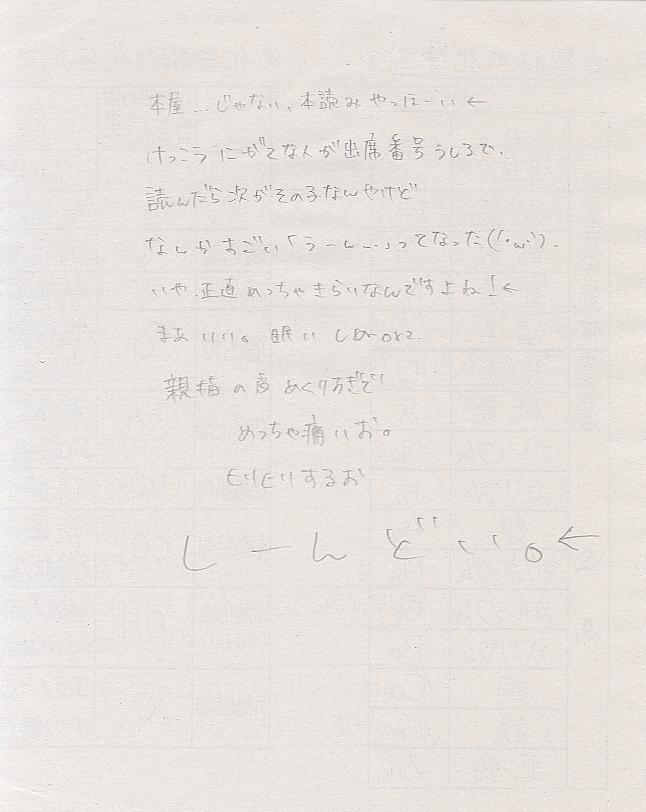 本屋…じゃない、本読みやっほーい←
けっこうにがてな人が出席番号うしろで、
読んだら次がその子なんやけど
なんかすごい「うーん…」ってなった(´・ω・`).
いや、正直めっちゃきらいなんですよね!←
まあいい。眠いしぬorz.
親指の皮めくりすぎで
めっちゃ痛いお。
ヒリヒリするお
しーんどい。←